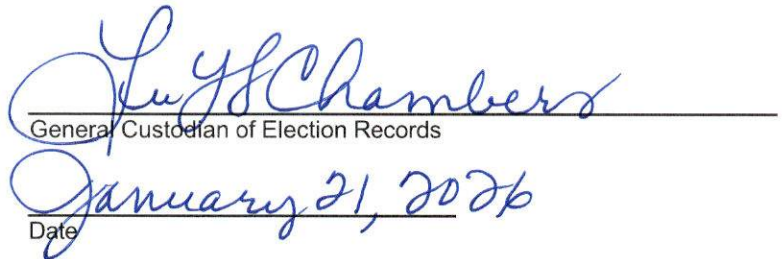 Chambers
General Custodian of Election Records
January 21, 2026
Date